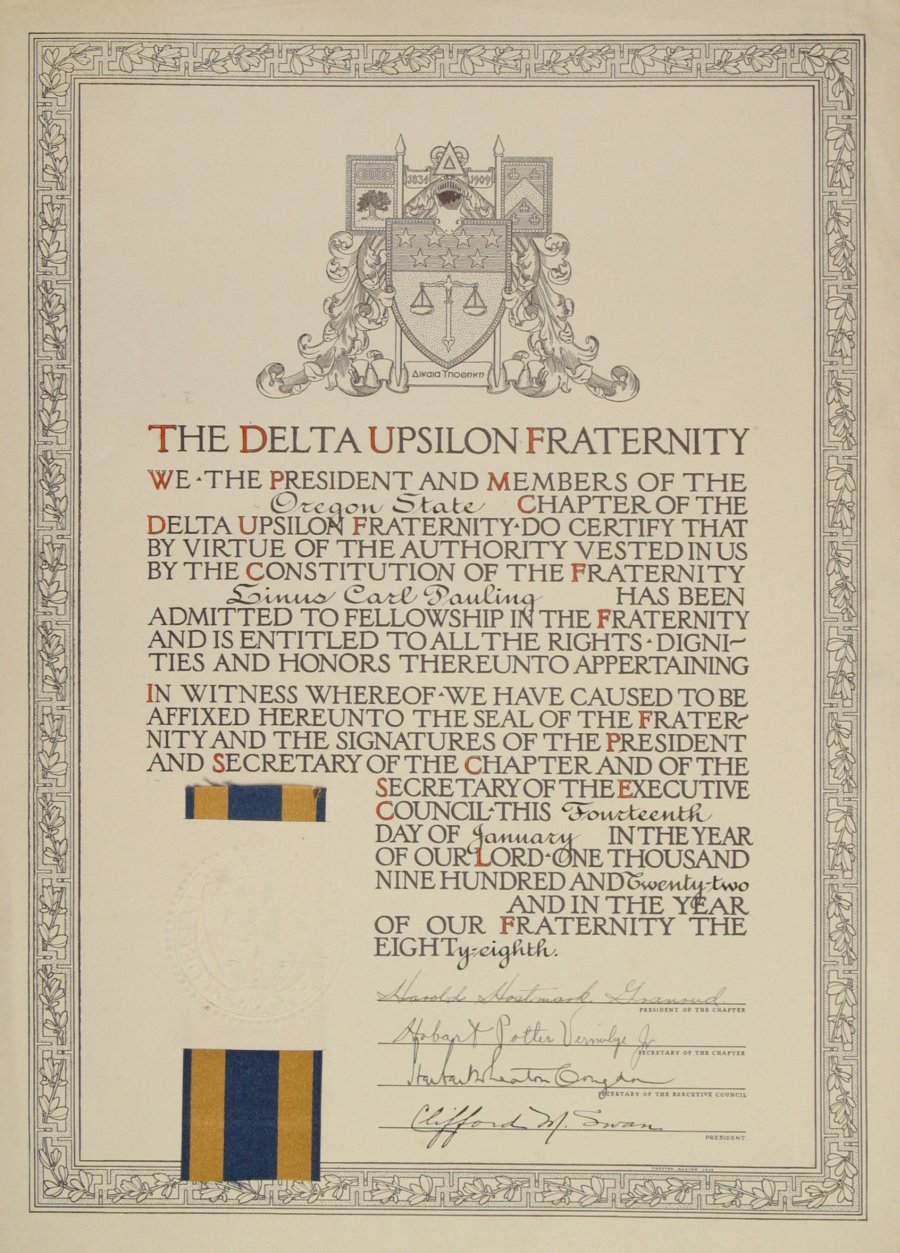 1834 1909
Δικαια Υποθηκη
THE DELTA UPSILON FRATERNITY
WE · THE PRESIDENT AND MEMBERS OF THE
Oregon State CHAPTER OF THE
DELTA UPSILON FRATERNITY · DO CERTIFY THAT
BY VIRTUE OF THE AUTHORITY VESTED IN US
BY THE CONSTITUTION OF THE FRATERNITY
Linus Carl Pauling HAS BEEN
ADMITTED TO FELLOWSHIP IN THE FRATERNITY
AND IS ENTITLED TO ALL THE RIGHTS · DIGNI-
TIES AND HONORS THEREUNTO APPERTAINING
IN WITNESS WHEREOF · WE HAVE CAUSED TO BE
AFFIXED HEREUNTO THE SEAL OF THE FRATER-
NITY AND THE SIGNATURES OF THE PRESIDENT
AND SECRETARY OF THE CHAPTER AND OF THE
SECRETARY OF THE EXECUTIVE
COUNCIL · THIS Fourteenth
DAY OF January IN THE YEAR
OF OUR LORD · ONE THOUSAND
NINE HUNDRED AND Twenty-two
AND IN THE YEAR
OF OUR FRATERNITY THE
EIGHTy-eighth.
Harold Hostmark
PRESIDENT OF THE CHAPTER
Hobart Potter Vermilye Jr
SECRETARY OF THE CHAPTER
Wheaton Congdon
SECRETARY OF THE EXECUTIVE COUNCIL
Clifford M. Swan
PRESIDENT